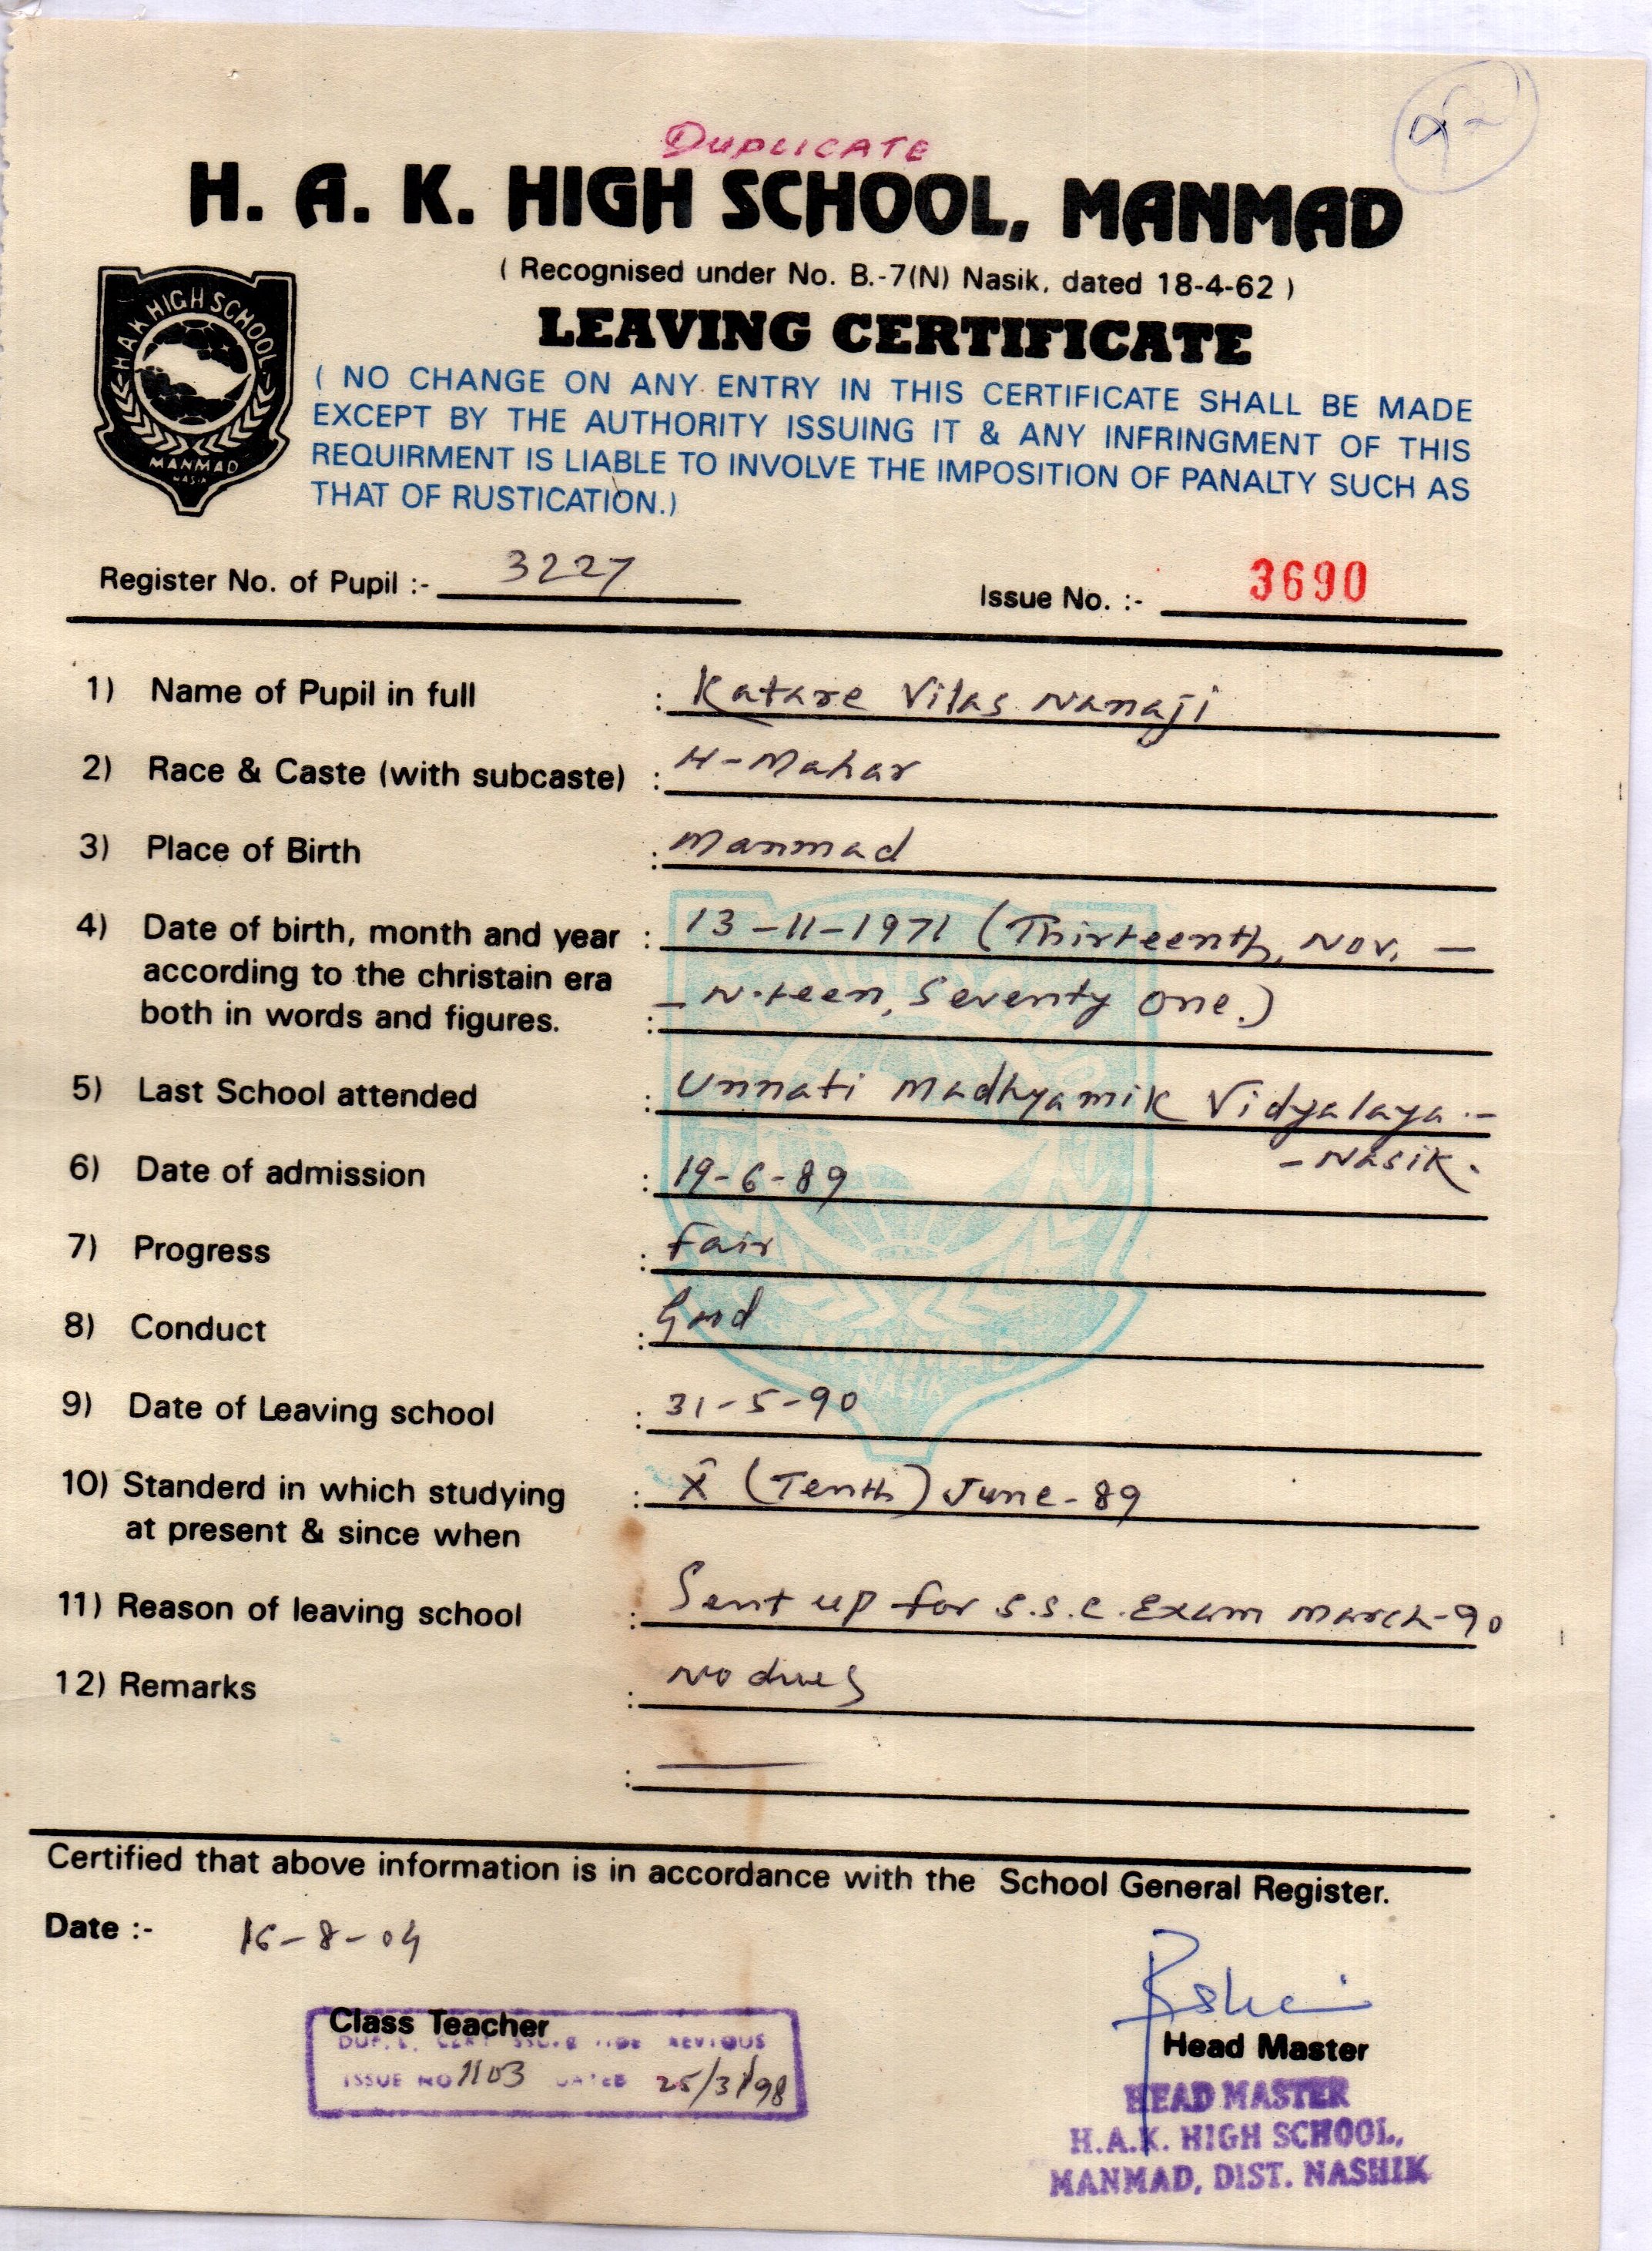 DUPLICATE
H. A. K. HIGH SCHOOL, MANMAD
( Recognised under No. B.-7(N) Nasik, dated 18-4-62 )
LEAVING CERTIFICATE
H A K HIGH SCHOOL
MANMAD
NASIK
( NO CHANGE ON ANY ENTRY IN THIS CERTIFICATE SHALL BE MADE
EXCEPT BY THE AUTHORITY ISSUING IT & ANY INFRINGMENT OF THIS
REQUIRMENT IS LIABLE TO INVOLVE THE IMPOSITION OF PANALTY SUCH AS
THAT OF RUSTICATION.)
Register No. of Pupil :- 3227 Issue No. :- 3690
1) Name of Pupil in full : Katare Vilas Nanaji
2) Race & Caste (with subcaste) : H-Mahar
3) Place of Birth : Manmad
4) Date of birth, month and year : 13-11-1971 (Thirteenth, Nov. -
according to the christain era - N.teen, Seventy One.)
both in words and figures. :
5) Last School attended : Unnati Madhyamik Vidyalaya.-
- Nasik.
6) Date of admission : 19-6-89
7) Progress : Fair
8) Conduct : Good
MANMAD
NASIK
9) Date of Leaving school : 31-5-90
10) Standerd in which studying : X (Tenth) June-89
at present & since when
11) Reason of leaving school : Sent up for S.S.C. Exam March-90
12) Remarks : No dues
:
Certified that above information is in accordance with the School General Register.
Date :- 16-8-04
Class Teacher
ISSUE NO 1103 DATED 25/3/98
Head Master
HEAD MASTER
H.A.K. HIGH SCHOOL,
MANMAD, DIST. NASHIK